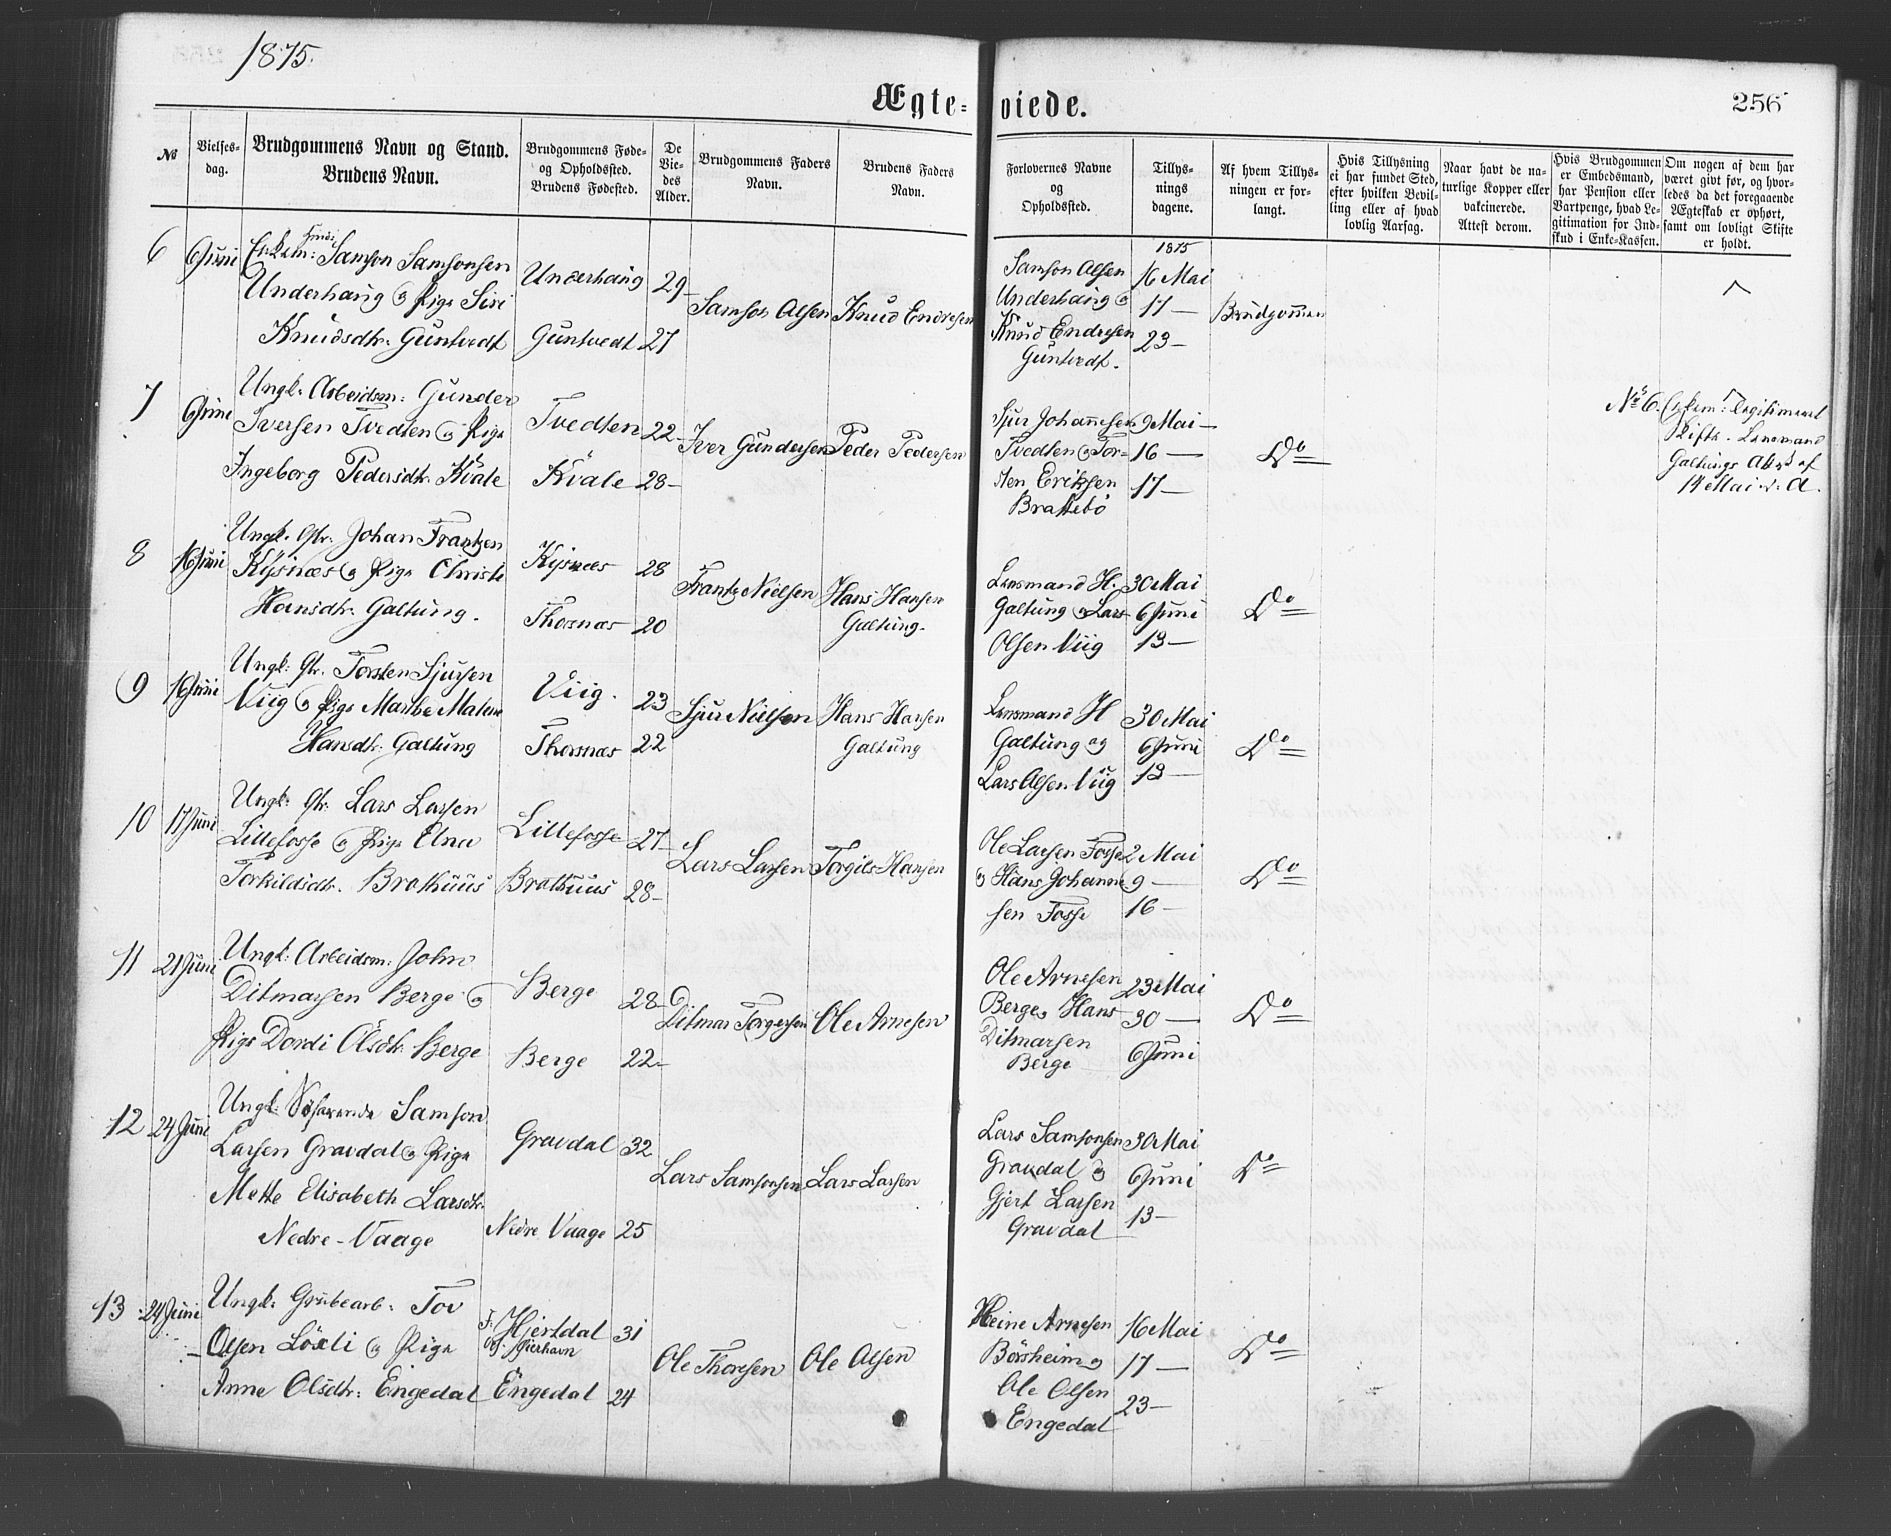 1875.
Ægte-viede.
256
№
Vielses-
dag.
Brudgommens Navn og Stand.
Brudens Navn.
Brudgommens Føde-
og Opholdssted.
Brudens Fødested.
De
Vie-
des
Alder.
Brudgommens Faders
Navn.
Brudens Faders
Navn.
Forlovernes Navne
og
Opholdssted.
Tillys-
nings
dagene.
Af hvem Tillys-
ningen er for-
langt.
Hvis Tillysning
ei har fundet Sted,
efter hvilken Bevil-
ling eller af hvad
lovlig Aarsag.
Naar havt de na-
turlige Kopper eller
vakcinerede.
Attest derom.
Hvis Brudgommen
er Embedsmand,
har Pension eller
Vartpenge, hvad Le-
gitimation for Ind-
skud i Enke-Kassen.
Om nogen af dem har
været givt før, og hvor-
ledes da det foregaaende
Ægteskab er ophørt,
samt om lovligt Skifte
er holdt.
6
6 Juni
Enkem: Samson Samsonsen
Underhaug og Pige Siri
Knudsdtr. Guntvedt
Underhaug 29-
Guntvedt 27
Samson Olsen
Knud Endresen
Samson Olsen
Underhaug og
Knud Endresen
Guntvedt.
1875
16 Mai
17 —
23 —
Brudgommen
7
6 Juni
Ungk. Arbeidsm: Gunder
Iversen Tvedten og Pige
Ingeborg Pedersdtr. Kvale
Tvedten 22-
Kvale 28-
Iver Gundersen
Peder Pedersen
Sjur Johannesen
Tvedten og Tor-
sten Eriksen
Brattebö
9 Mai —
16 —
17 —
Do
No 6. Enkem: legitimeret
Skifte. Lensmand
Galtungs Att. af
14 Mai d. A.
8
16 Juni
Ungk. Gbr. Johan Frantzen
Kysnæs og Pige Christi
Hansdtr. Galtung.
Kysnæs 28
Thorsnæs 20
Frantz Nielsen
Hans Hansen
Galtung.
Lensmand H.
Galtung og Lars
Olsen Viig
30 Mai
6 Juni
13 —
Do
9
16 Juni
Ungk: Gbr. Torsten Sjursen
Viig og Pige Marthe Malene
Hansdtr. Galtung
Viig. 23
Thorsnæs 22
Sjur Nielsen
Hans Hansen
Galtung
Lensmand H
Galtung og
Lars Olsen Viig
30 Mai
6 Juni
13 —
Do
10
17 Juni
Ungk: Gbr. Lars Larsen
Lillefosse og Pige Elna
Torkildsdtr. Brathuus
Lillefosse 27-
Brathuus 28-
Lars Larsen
Torgils Hansen
Ole Larsen Fosse
og Hans Johanne-
sen Fosse
2 Mai
9 —
16 —
Do
11
21 Juni
Ungk: Arbeidsm: John
Ditmarsen Berge og
Pige Dordi Olsdtr. Berge
Berge 28-
Berge 22-
Ditmar Torgersen
Ole Arnesen
Ole Arnesen
Berge og Hans
Ditmarsen
Berge
23 Mai
30 —
6 Juni
Do
12
24 Juni
Ungk: Söfarende Samson
Larsen Gravdal og Pige
Mette Elisabeth Larsdtr.
Nedre-Vaage
Gravdal 32
Nedre Vaage 25
Lars Samsonsen
Lars Larsen
Lars Samsonsen
Gravdal og
Gjert Larsen
Gravdal
30 Mai
6 Juni
13 —
Do
13
24 Juni
Ungk: Grubearb: Tov
Olsen Löxli og Pige
Anne Olsdtr: Engedal
F: Hjertdal 31
Engedal 24
Ole Thoresen
Ole Olsen
Heine Arnesen
Börsheim og
Ole Olsen
Engedal
16 Mai
17 —
23 —
Do